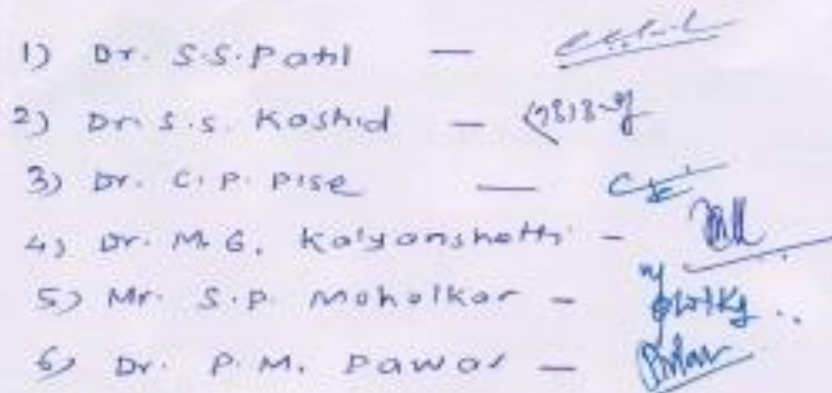 1) Dr. S.S. Patil —
2) Dr. S.S. Kashid —
3) Dr. C. P. Pise —
4) Dr. M. G. Kalyanshetti -
5) Mr. S.P. Moholkar -
6) Dr. P. M. Pawar —